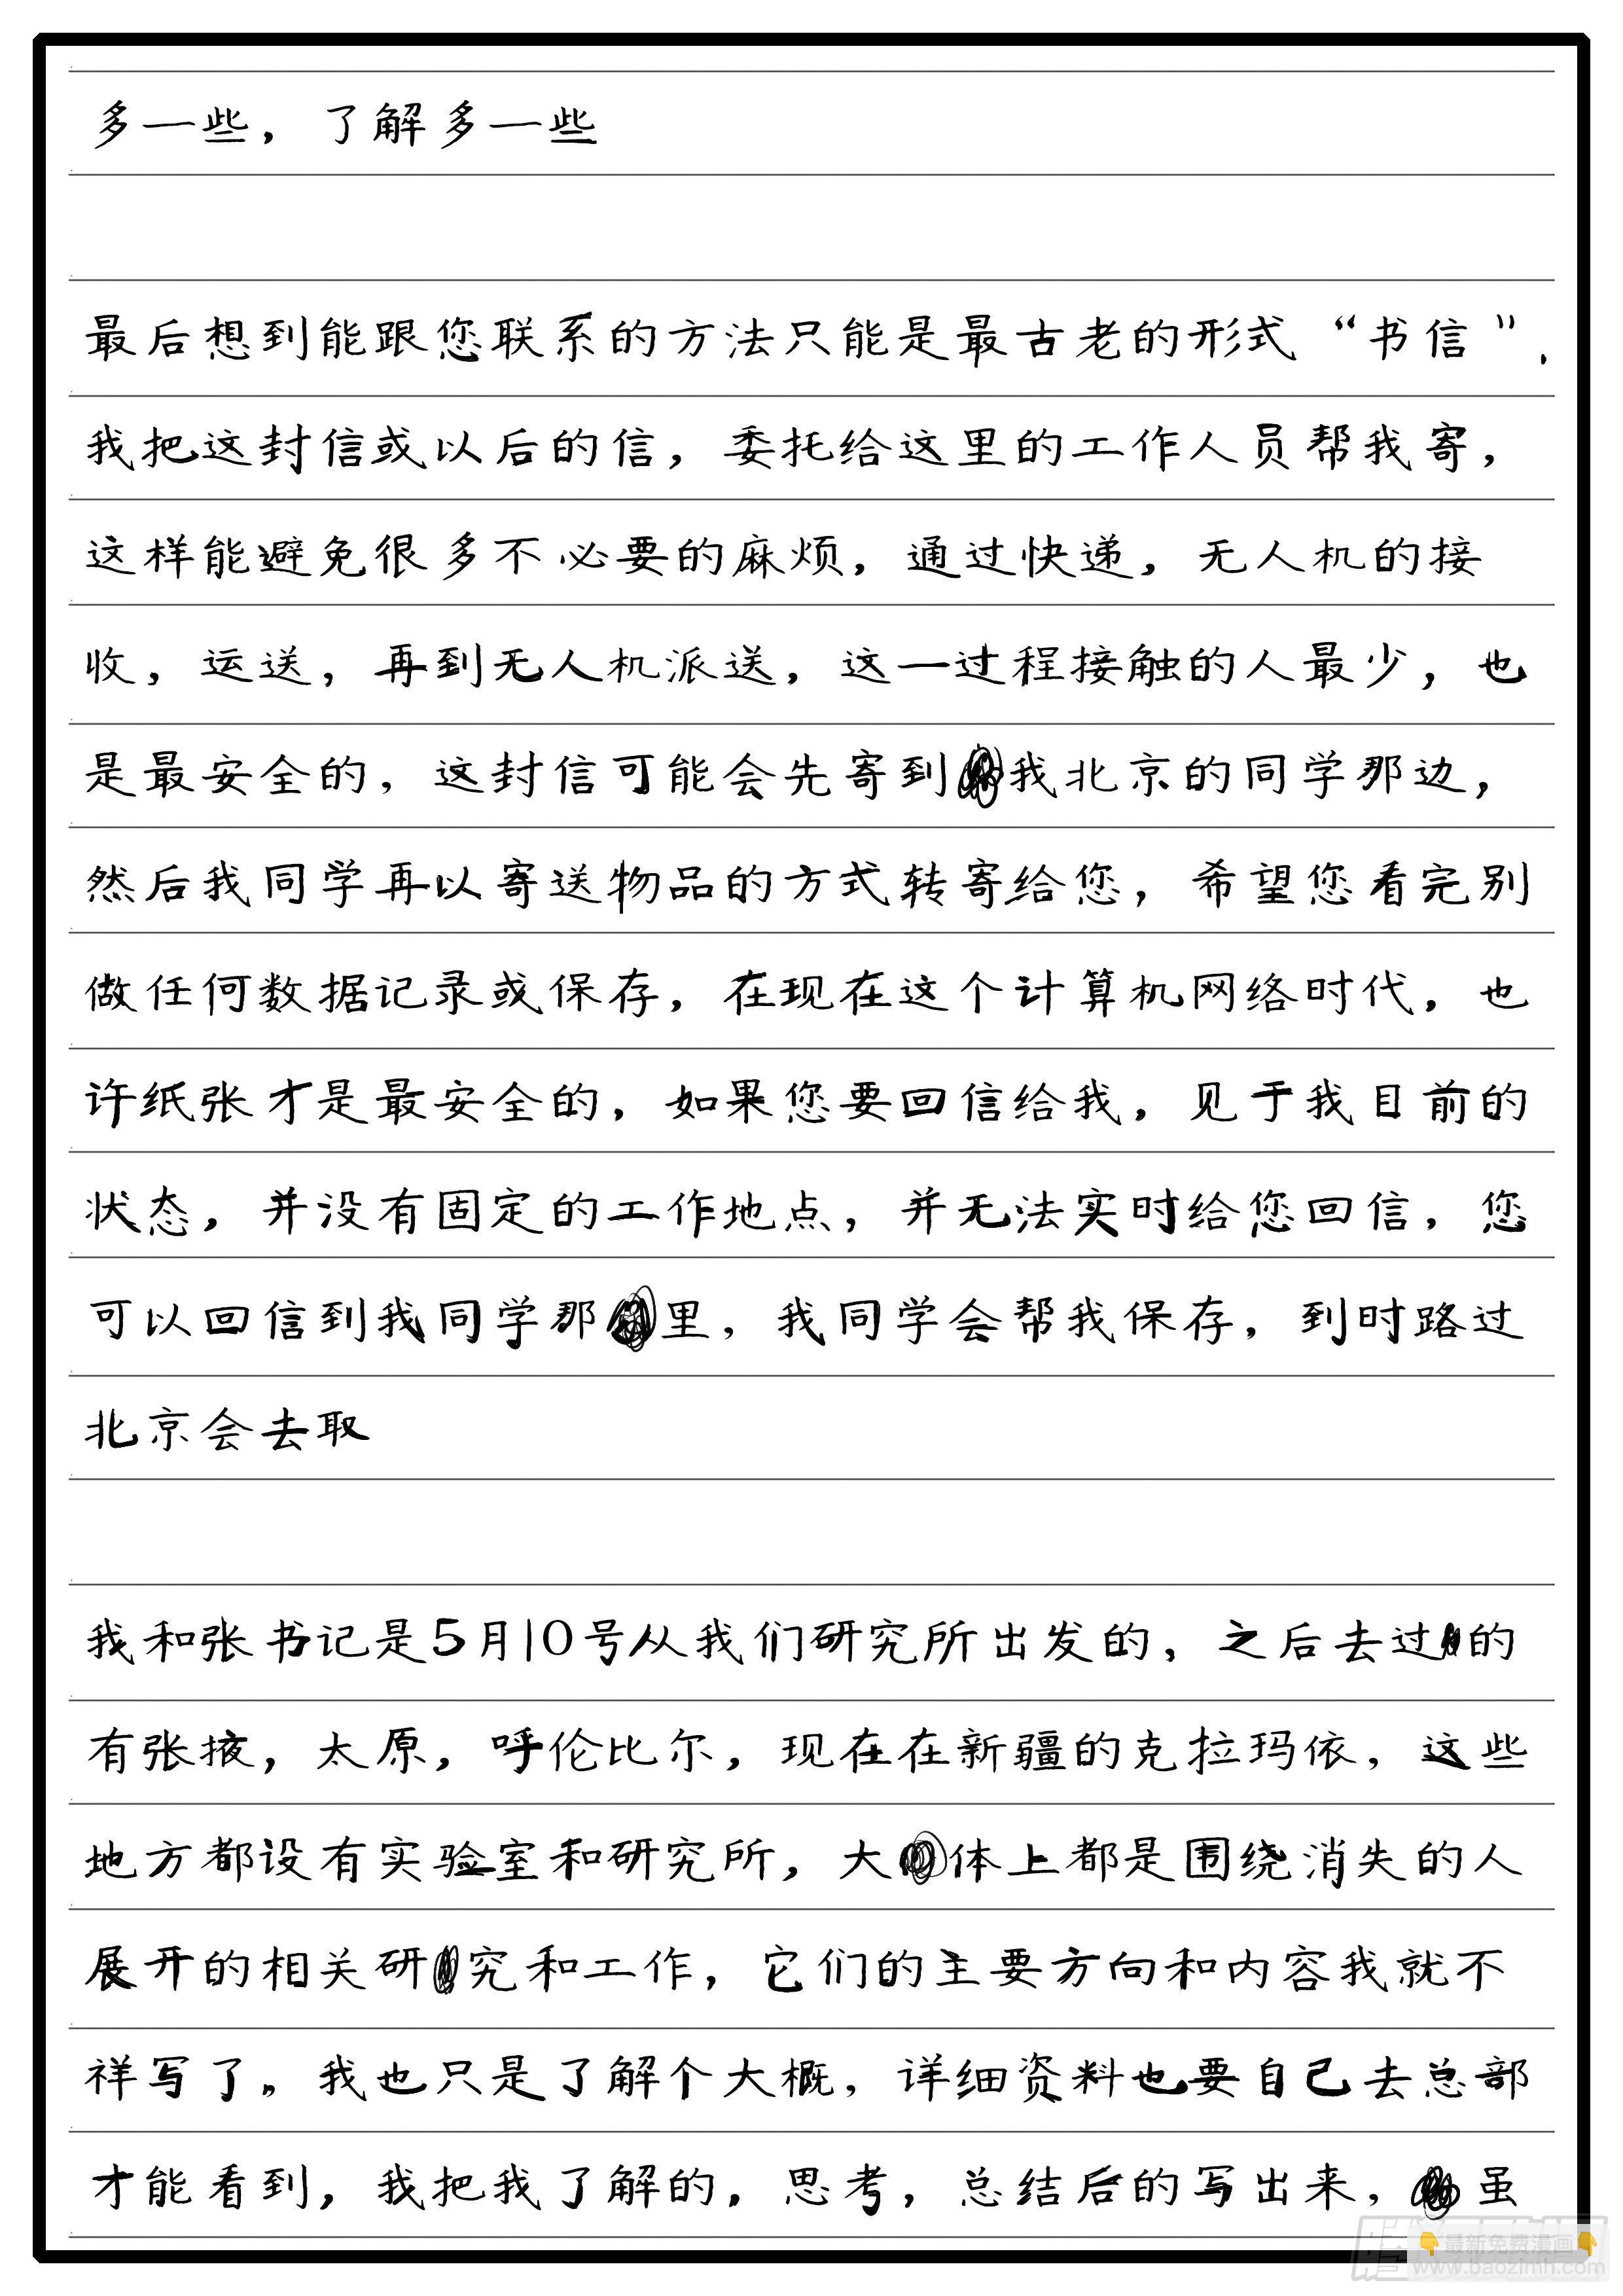 多一些，了解多一些
最后想到能跟您联系的方法只能是最古老的形式“书信”.
我把这封信或以后的信，委托给这里的工作人员帮我寄，
这样能避免很多不必要的麻烦，通过快递，无人机的接
收，运送，再到无人机派送，这一过程接触的人最少，也
是最安全的，这封信可能会先寄到我北京的同学那边，
然后我同学再以寄送物品的方式转寄给您，希望您看完别
做任何数据记录或保存，在现在这个计算机网络时代，也
许纸张才是最安全的，如果您要回信给我，见于我目前的
状态，并没有固定的工作地点，并无法实时给您回信，您
可以回信到我同学那里，我同学会帮我保存，到时路过
北京会去取
我和张书记是5月10号从我们研究所出发的，之后去过的
有张掖，太原，呼伦比尔，现在在新疆的克拉玛依，这些
地方都设有实验室和研究所，大体上都是围绕消失的人
展开的相关研究和工作，它们的主要方向和内容我就不
祥写了，我也只是了解个大概，详细资料也要自己去总部
才能看到，我把我了解的，思考，总结后的写出来，虽
最新免费漫画
www.baozimh.com